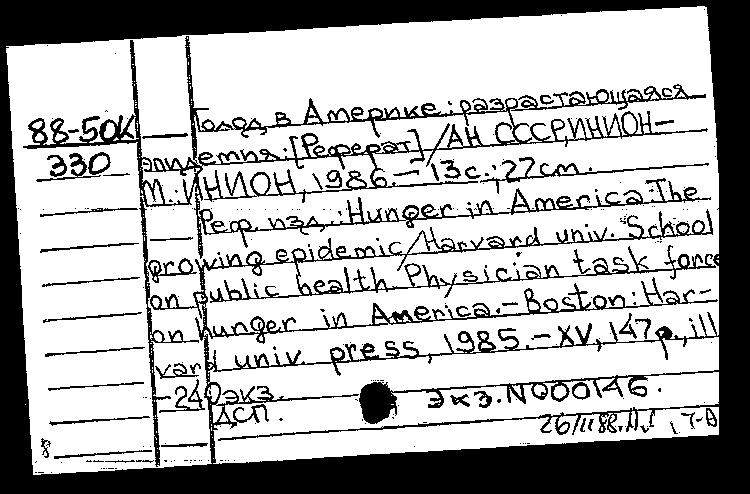 88-50К
330
Голод в Америке: разрастающаяся
эпидемия: [Реферат] / АН СССР, ИНИОН-
М.: ИНИОН, 1986.- 13с.; 27см.
Реф. изд.: Hunger in America: The
growing epidemic / Harvard univ. School
on public health. Physician task force
on hunger in America.-Boston: Har-
vard univ. press, 1985.-XV, 147p., ill
-240экз.
ДСП.
Экз. N000146.